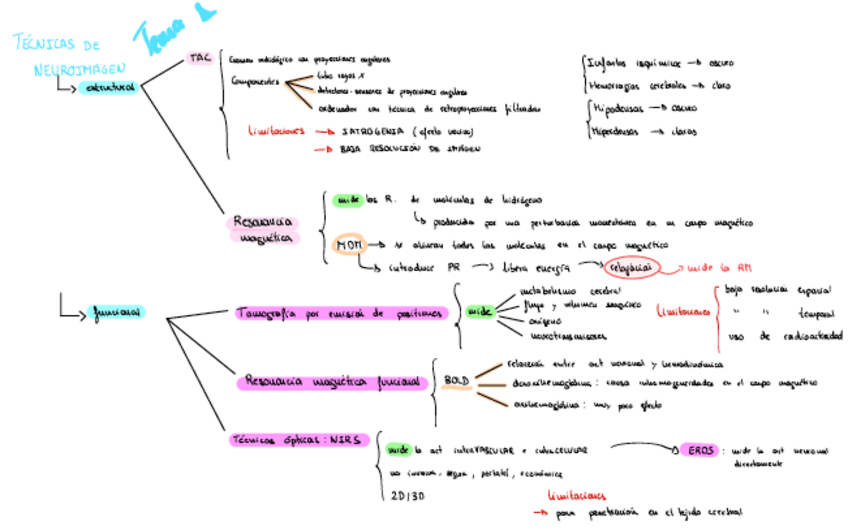 Tema 1
TÉCNICAS DE
NEUROIMAGEN
estructural
TAC
Examen radiológico con proyecciones angulares
Componentes
tubo rayos X
detectores - sensores de proyecciones angulares
ordenador con técnica de retroproyecciones filtradas
Limitaciones → IATROGENIA (efecto nocivo)
→ BAJA RESOLUCIÓN DE IMÁGEN
Infartos isquémicos → oscuro
Hemorragias cerebrales → claro
Hipodensas → oscuro
Hiperdensas → claras
Resonancia
magnética
mide las R. de moléculas de hidrógeno
producida por una perturbación momentánea en un campo magnético
MDM → se alinean todas las moléculas en el campo magnético
introduce PR → libera energía → relajación → mide la RM
funcional
Tomografía por emisión de positrones
mide
metabolismo cerebral
flujo y volumen sanguíneo
oxígeno
neurotransmisores
Limitaciones
baja resolución espacial
" " temporal
uso de radioactividad
Resonancia magnética funcional
BOLD
relación entre act neuronal y hemodinámica
desoxihemoglobina: causa inhomogeneidades en el campo magnético
oxihemoglobina: muy poco efecto
Técnicas ópticas: NIRS
mide la act intraVASCULAR e intraCELULAR
EROS: mide la act neuronal
directamente
no invasiva, segura, portátil, económica
2D/3D
Limitaciones
→ poca penetración en el tejido cerebral